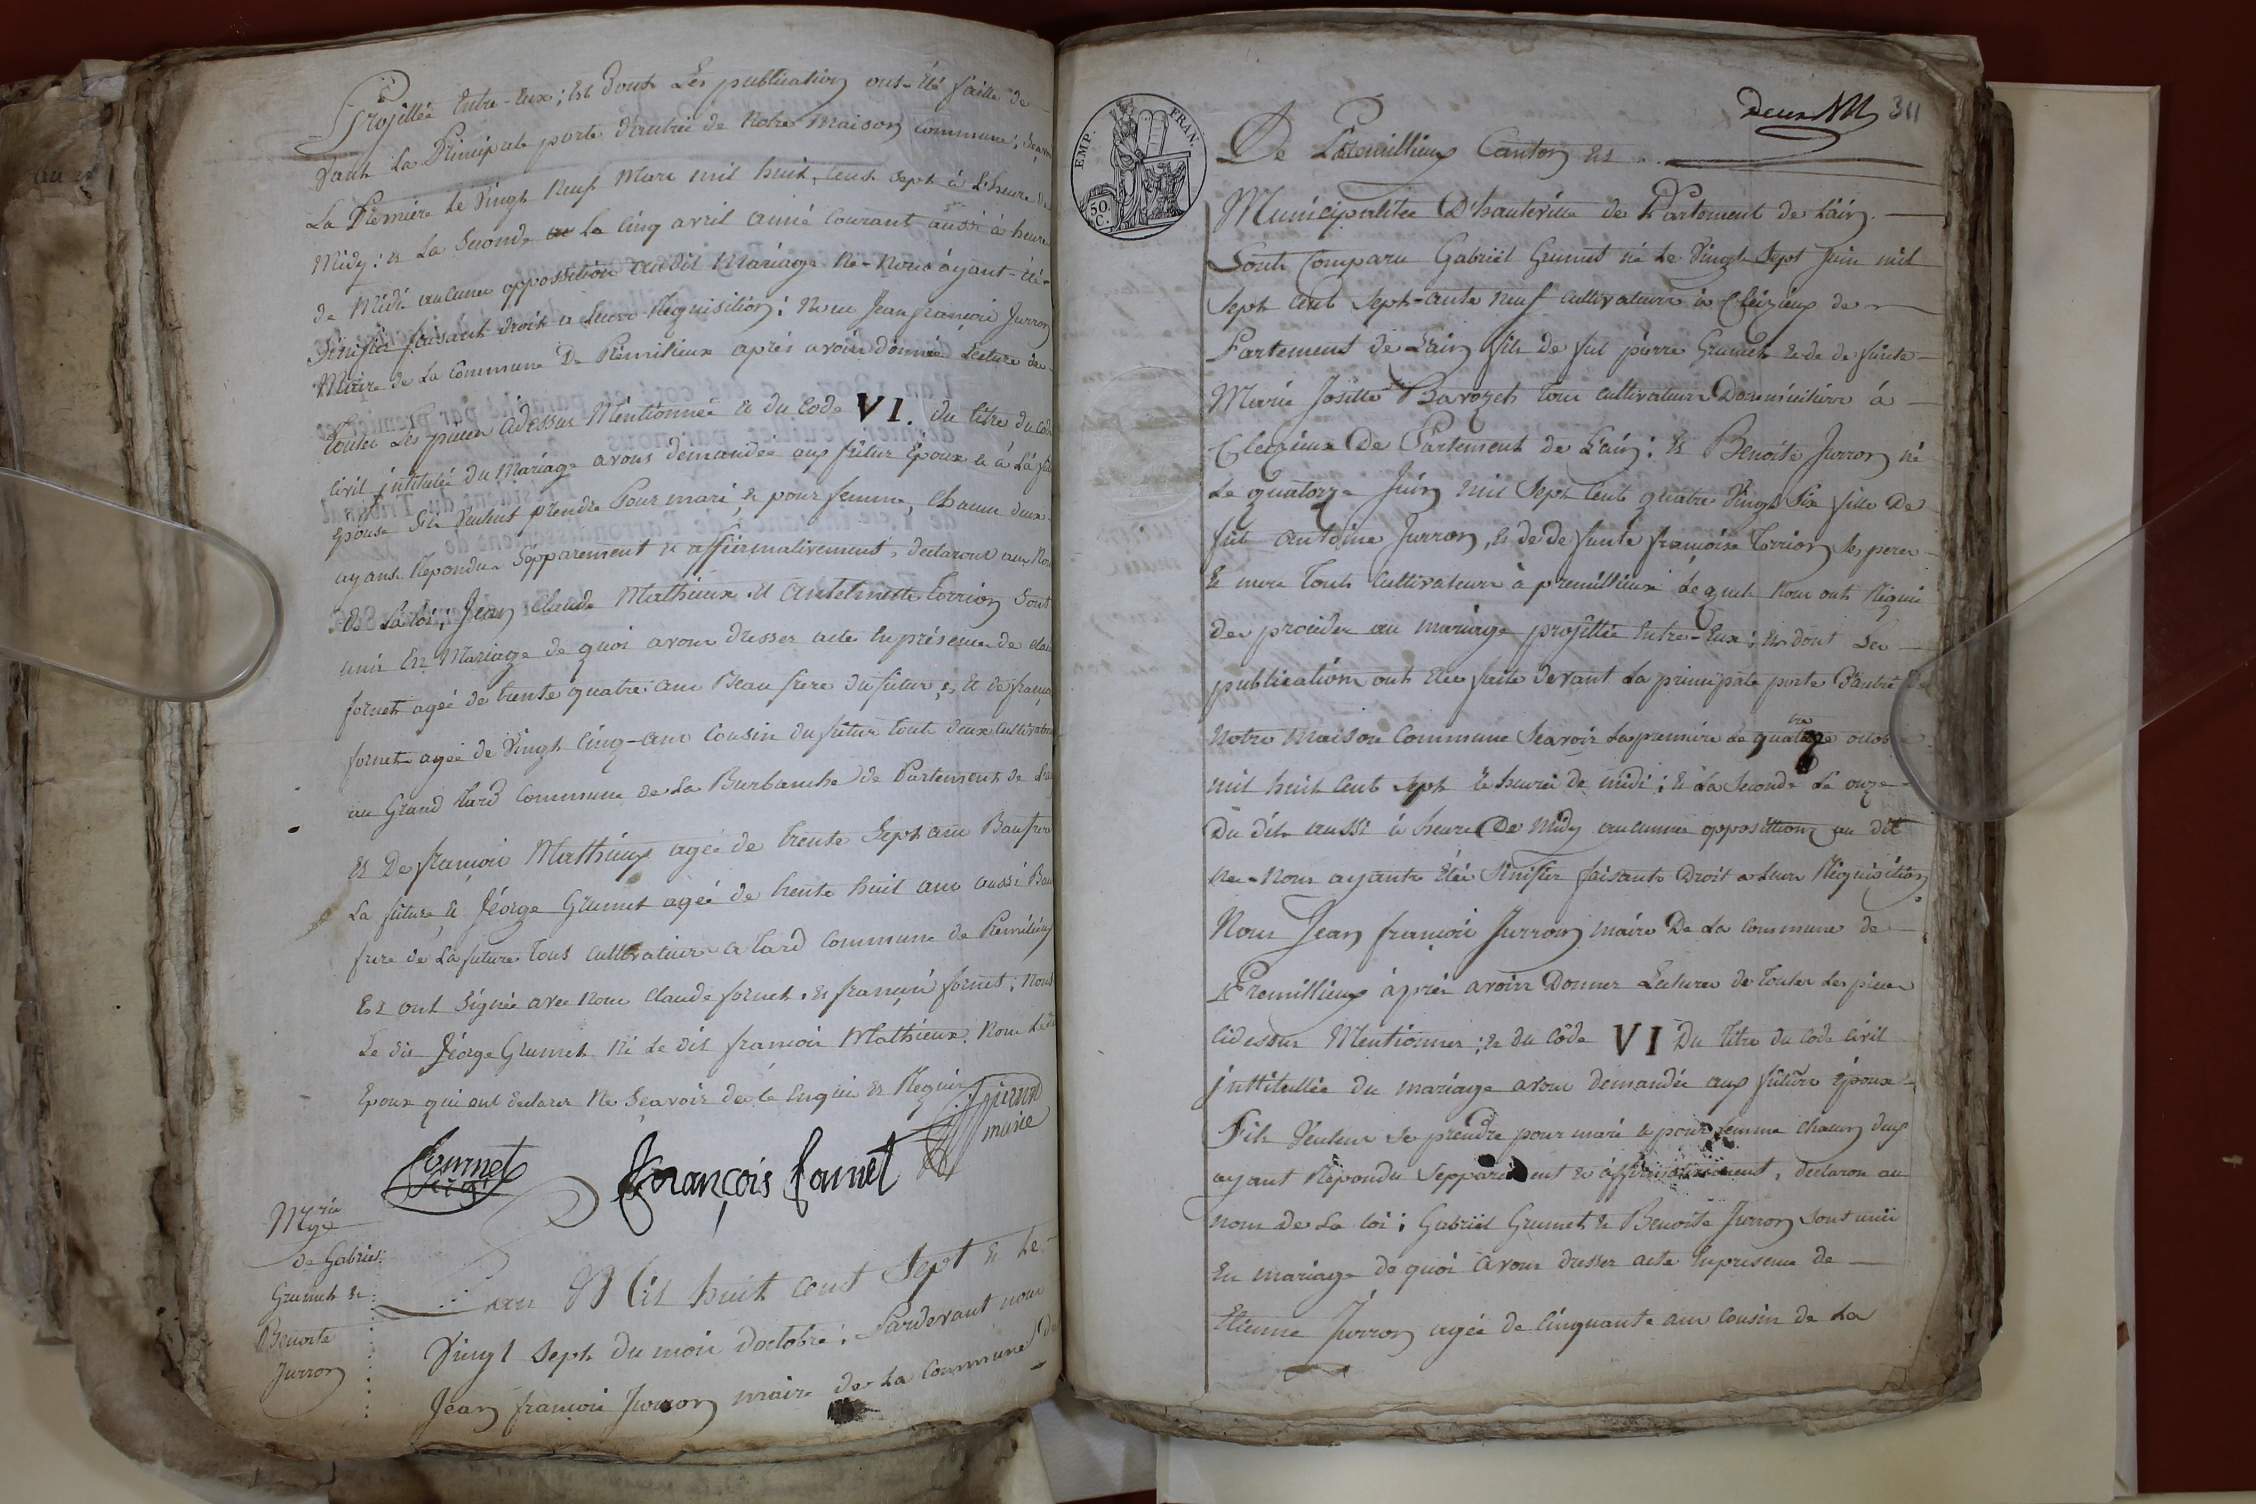 Projettée Entre-Eux ; Et Dont Les publication ont été faitte de
vant La Principale porte d'entrée de Notre Maison commune ;
La Première le Vingt Neuf Mars mil huit, Cent sept à L'heure de
Midy : et La Seconde le Cinq avril année Courant aussi à heure
de Midi aucune oppossition audit Mariage Ne-Nous áyant-été
Sinifiér faisant droit a Leurs Requisition : Nous Jean françois Jurron
Maire de La Commune De Prémilieux aprés avoir donnée Lecture de
Toutes Les pieces Ci dessus Mentionnée et du Code VI. du titre du Code
Civil intitulé Du Mariage avons demandée aux futur Epoux et à La
Epouse Sils Veulent prendre Pour mari, et pour femme, Chacun deux
ayant Repondu Sépparement et affirmativement, declarons au Nom
De La Loi ; Jean Claude Mathieux et Antelmette Torrion Sont
unis En Mariage de quoi avons dresser acte En présence de
fornet agée de trente quatre ans Beau frere du futur, et de françois
fornet agée de Vingt Cinq-ans Cousin du futur tout deux cultivateur
au Grand Tard Commune de La Burbanche de Partement de
et De françois Mathieux agée de trente Sept ans Baufrere
La future et Jéorge Grumet agée de trente huit ans aussi Bau
frere de La future Tous Cultivateur a Tard Commune de Prémilieux
Et ont Signée avec Nous Claude fornet. et françois fornet ; Nous
Le dit Jéorge Grumet Ni Le dit françois Mathieux, Nom
Epoux qui ont declarer Ne Sçavoir de ce Enquis et Requis
maire
fournet
françois fornet
de Gabriel
Grumet et
Benoite
Jurron
Lan Mil huit cent Sept et Le
Vingt sept du mois doctobre ; Pardevant nous
Jean françois Jurron maire de La Commune
311
EMP. FRAN.
50 C.
De Prémillieux Canton et
Municipalitée D'hauteville de Partement de Lain
Sont Comparu Gabriël Grumet né Le Vingt Sept Juin mil
Sept Cent Sept-ante neuf Cultivateur à Cleizieux de
Partement de Lain fils de fut pierre Grumet et de de funte
Marie Josette Tous cultivateur Domiciliée á
Cleizieux De Partement de Lain ; Et Benoite Jurron né
Le quatorze Juin mil Sept Cent quatre Vingt Six fille De
fut antoine Jurron, et de de funte françoise Torrion Ses peres
Et mere Touts Cultivateur à premillieux Lequels Nous ont Requis
De proceder au mariage projettée Entre-Eux ; et dont Les
publication ont étée faite devant La principale porte D'entré De
Notre Maison Commune Scavoir La premiére Le quatre octobre
mil huit Cent Sept et heure de midi ; et La Seconde Le onze
Du dit aussi à heure De Midy aucunne oppossittions au dit
Ne-Nous ayante étée Sinifiér faisante Droit a Leurs Réquisition
Nous Jean françois Jurron maire De La Commune de
Premillieux áprés avoir Donner Lecture de Toutes Les pieces
Cidessus Mentionner ; et du Côde VI Du titre du Code Civil
intitullée du mariage avons demandée aux fûtûre épouxe
Sils Veulent Se prendre pour mari et pour femme chacun deux
ayant Répondu Sepparement et áffirmativement, declarons au
Nom De La Loi ; Gabriël Grumet et Benoite Jurron Sont unis
En mariage de quoi avons dresser acte En présence de
Etienne Jurron agée de Cinquante ans Cousin de La